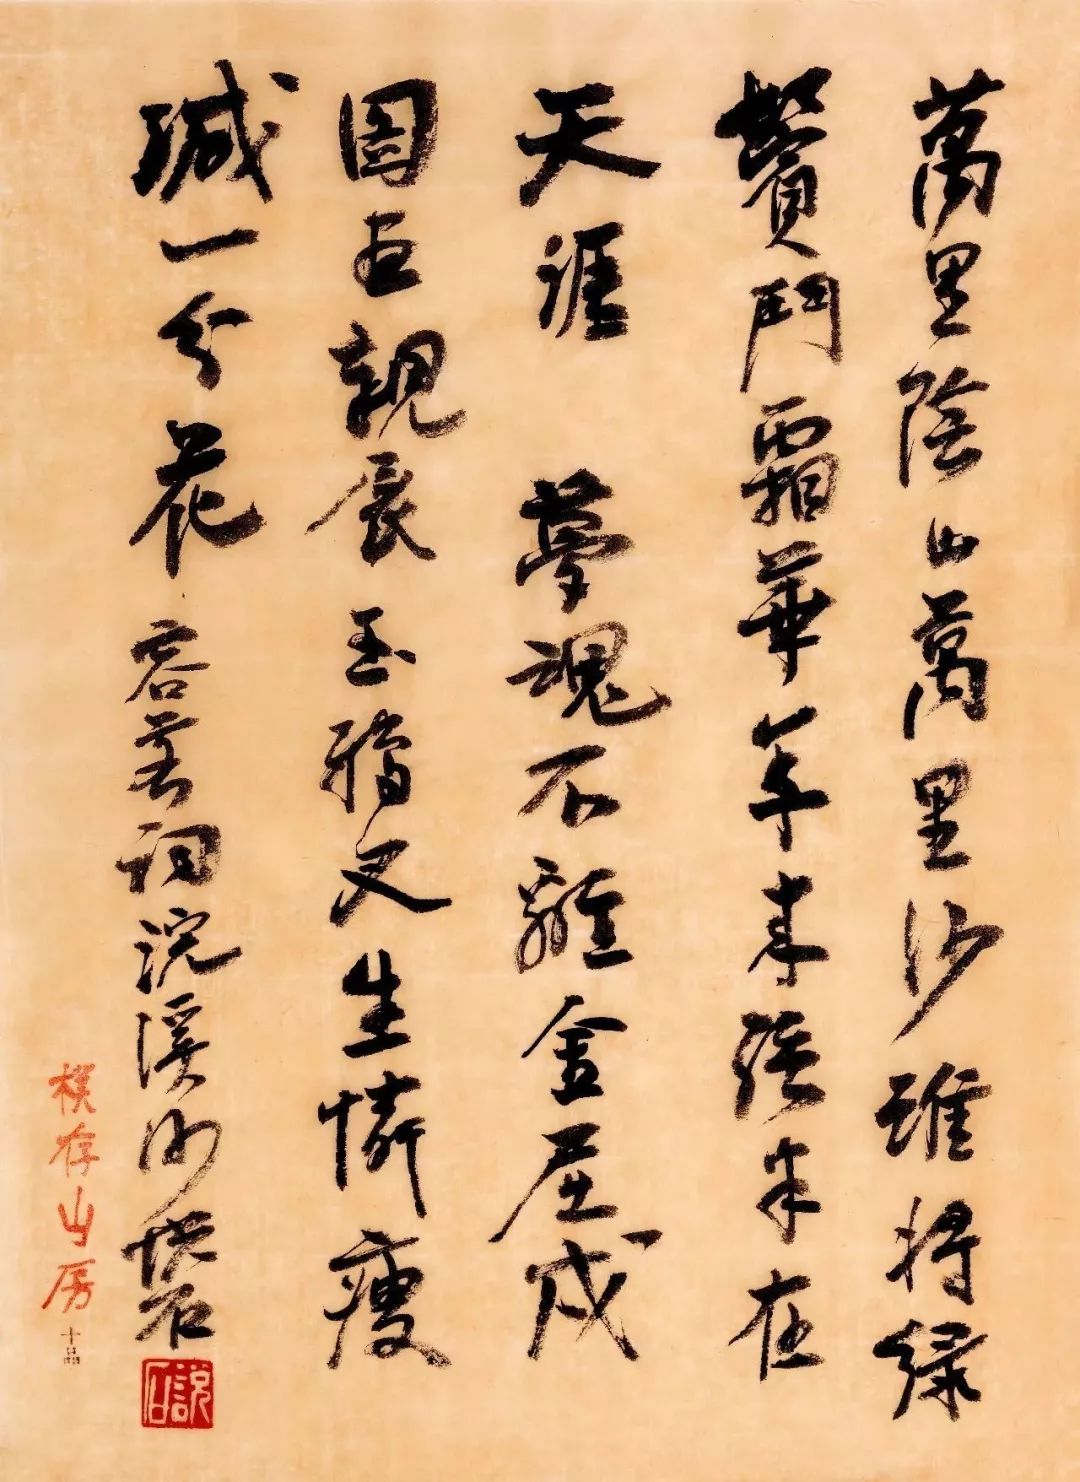 萬里陰山萬里沙誰將綠
鬢鬥霜華年來強半在
天涯 夢魂不離金屈戌
圖畫親展玉鴉叉生憐瘦
減一分花 容若詞浣溪沙
樸存山房
說石